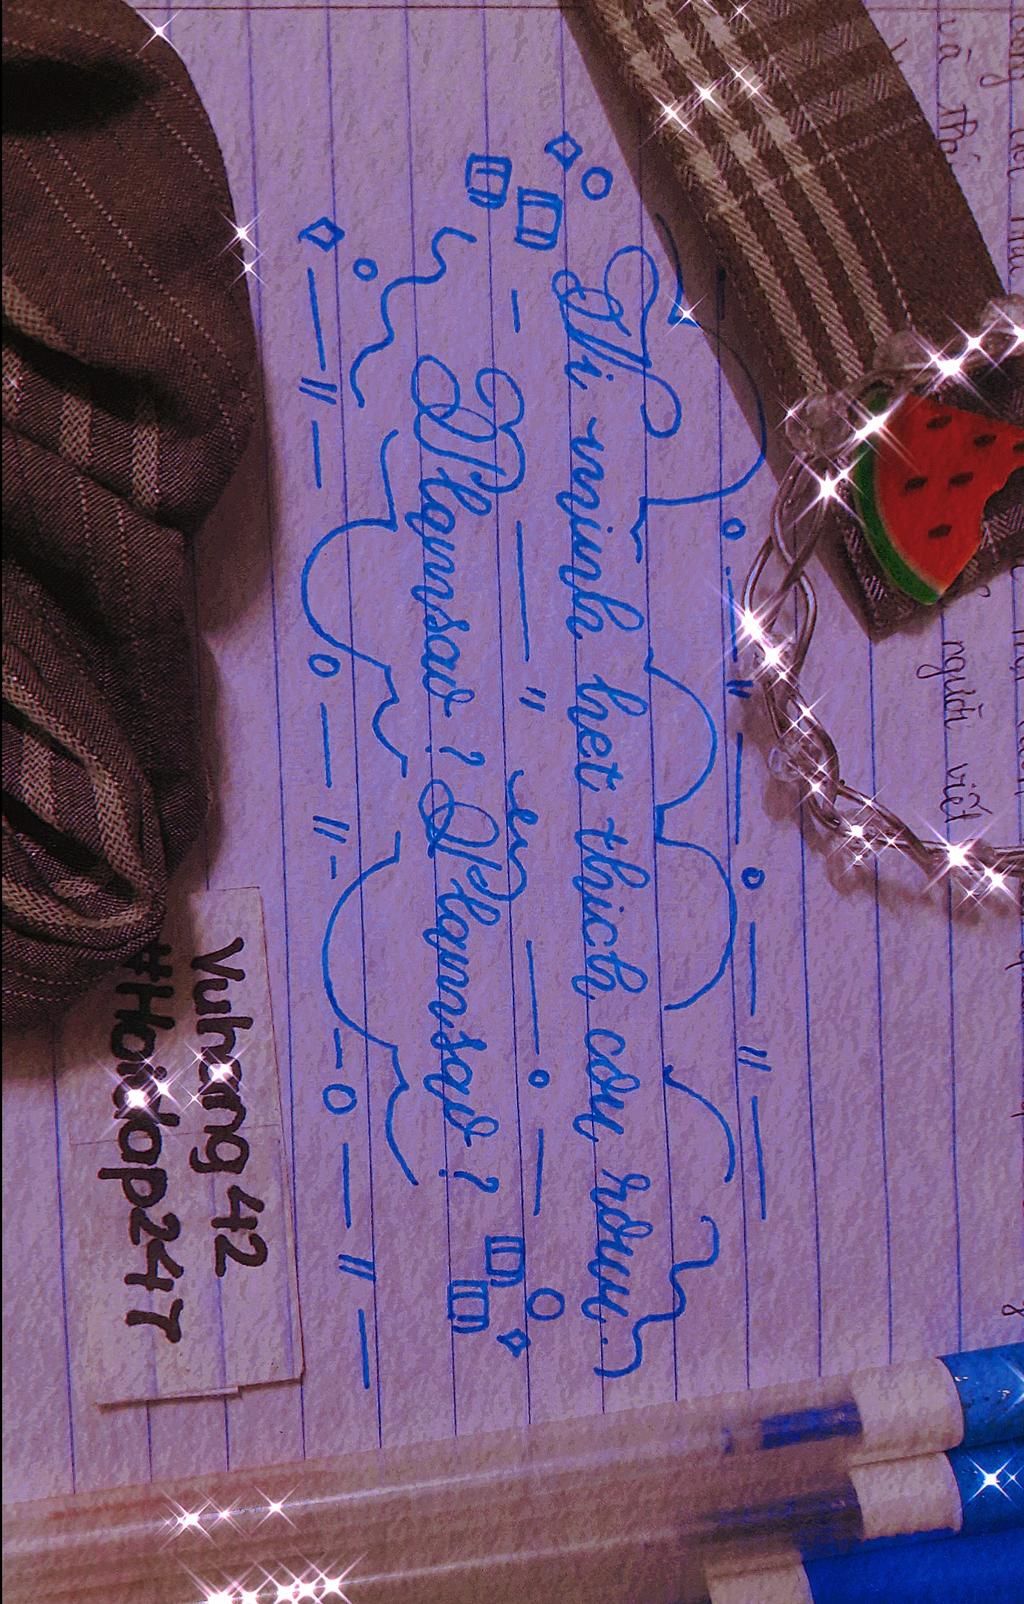 Vì mình hết thích cậu rồuu.
Hlamsao? Hlamsao?
Vuhang 42
#Hoidap247
và thì
người viết